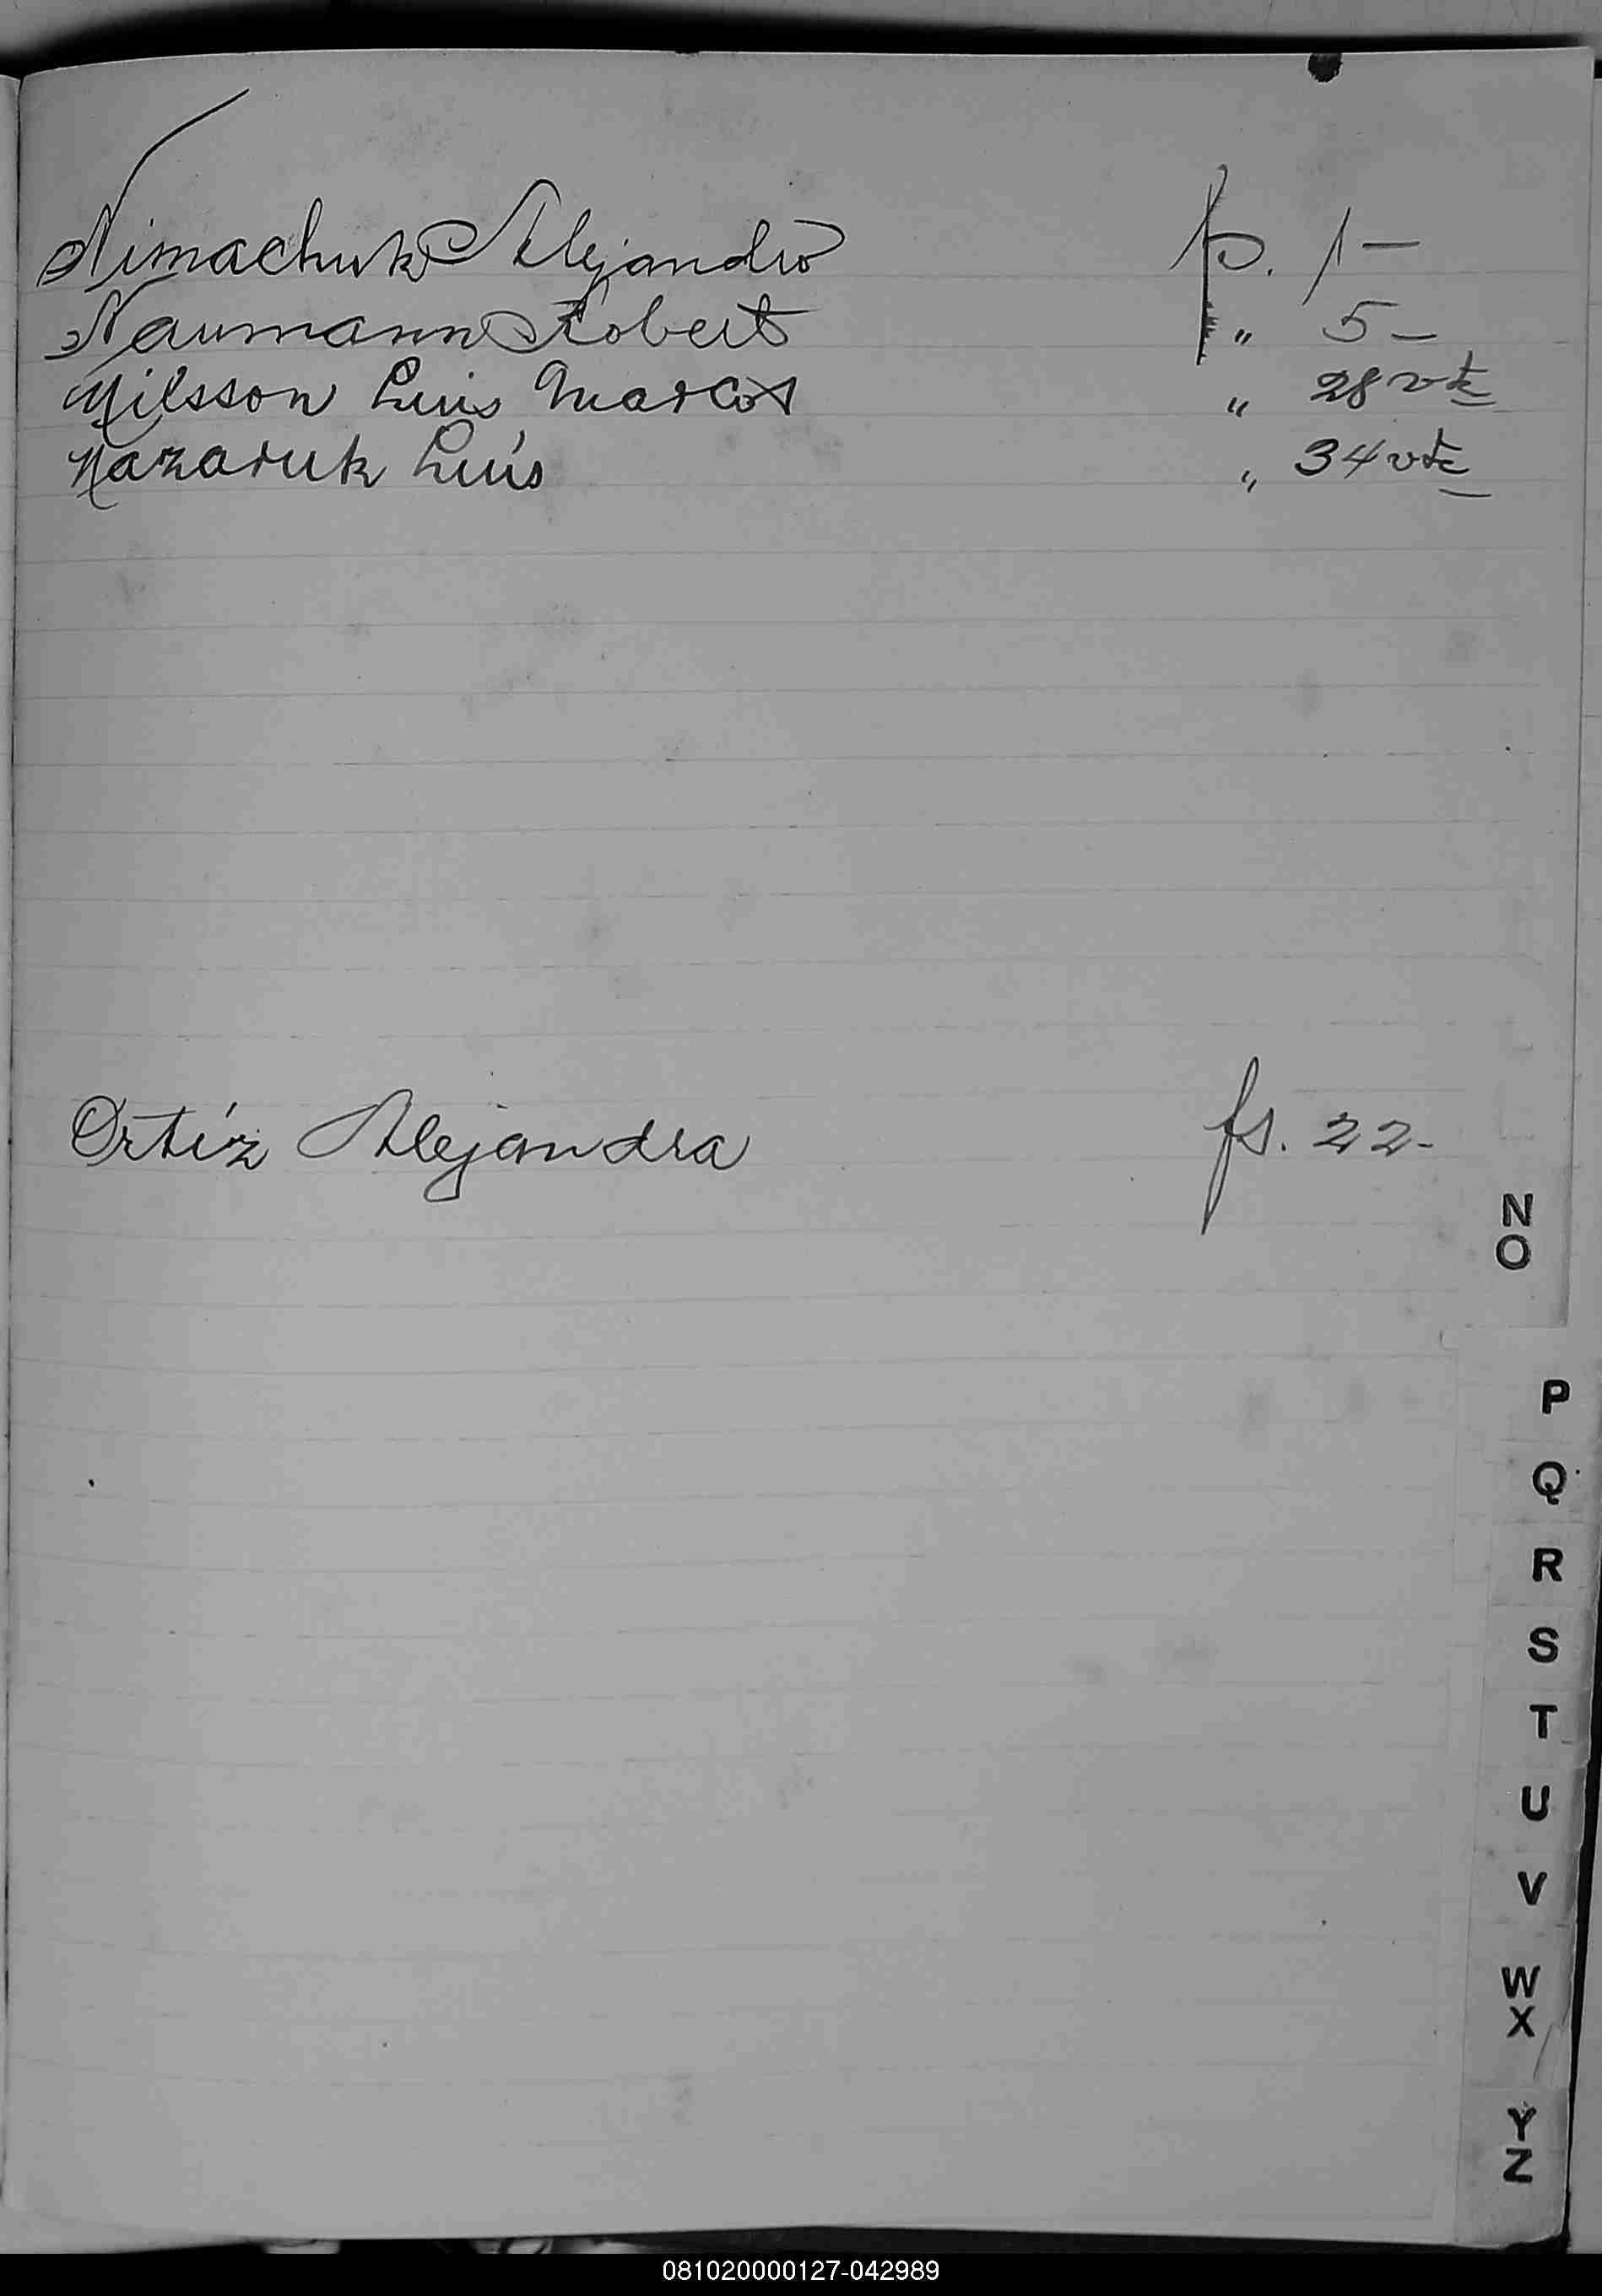 Nimachuk Alejandro p. 1-
Naumann Robert " 5-
Nilsson Luis Marcos " 28 vta
Nazaruk Luís " 34 vta
Ortíz Alejandra fs. 22-
N
O
P
Q
R
S
T
U
V
W
X
Y
Z
081020000127-042989